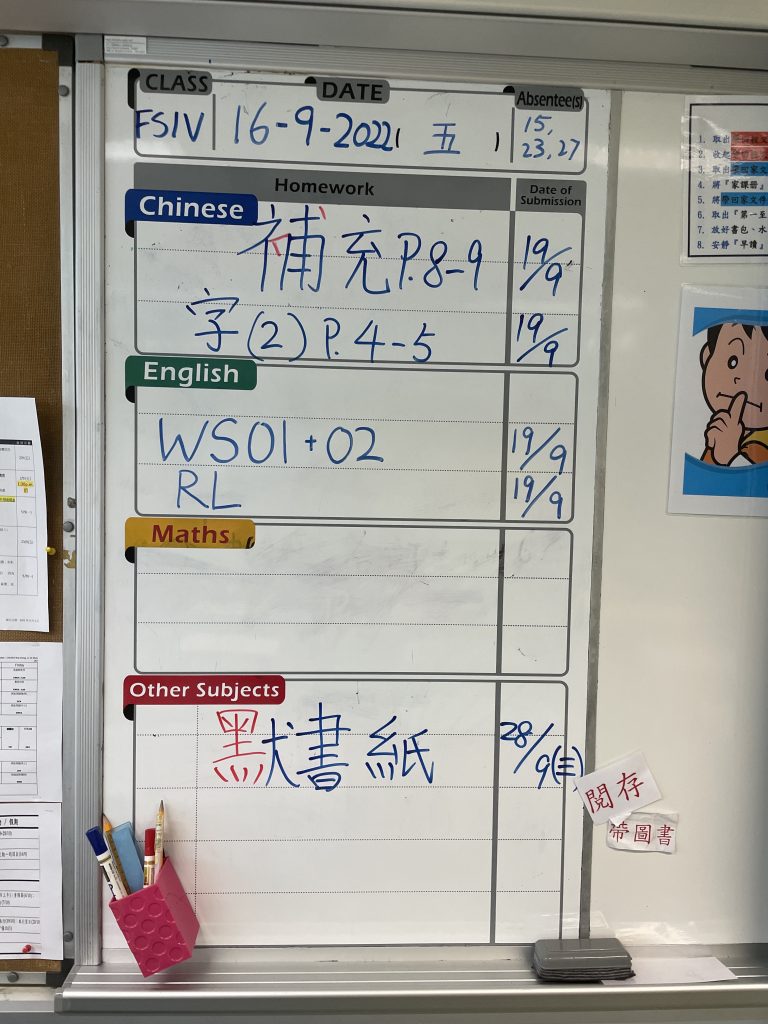 CLASS DATE Absentee(s)
FSIV 16-9-2022( 五 ) 15,
23,27
Homework Date of
Submission
Chinese
補充 P.8-9 19/9
字(2) P.4-5 19/9
English
WS01+02 19/9
RL 19/9
Maths
Other Subjects
默書紙 28/9(三)
閱存
帶圖書
1. 取出
2. 收起
3. 取出學回家文
4. 將『家課冊』
5. 將學回家文件
6. 取出『第一至
7. 放好書包、水
8. 安靜『早讀』